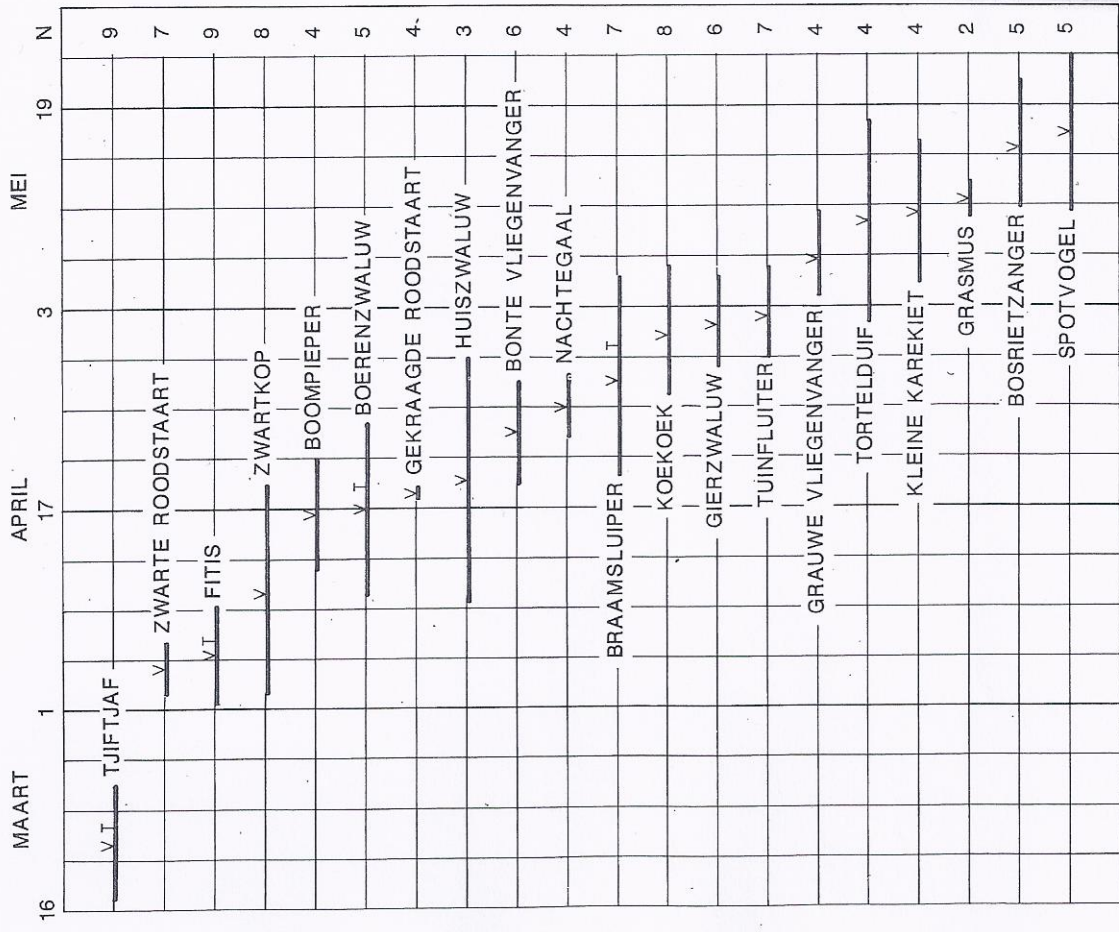 MAART APRIL MEI
16 1 17 3 19 N
V T TJIFTJAF 9
V ZWARTE ROODSTAART 7
V T FITIS 9
V ZWARTKOP 8
V BOOMPIEPER 4
V T BOERENZWALUW 5
V GEKRAAGDE ROODSTAART 4
V HUISZWALUW 3
V BONTE VLIEGENVANGER 6
V NACHTEGAAL 4
BRAAMSLUIPER V T 7
KOEKOEK V 8
GIERZWALUW V 6
TUINFLUITER V 7
GRAUWE VLIEGENVANGER V 4
TORTELDUIF V 4
KLEINE KAREKIET V 4
GRASMUS V 2
BOSRIETZANGER V 5
SPOTVOGEL V 5